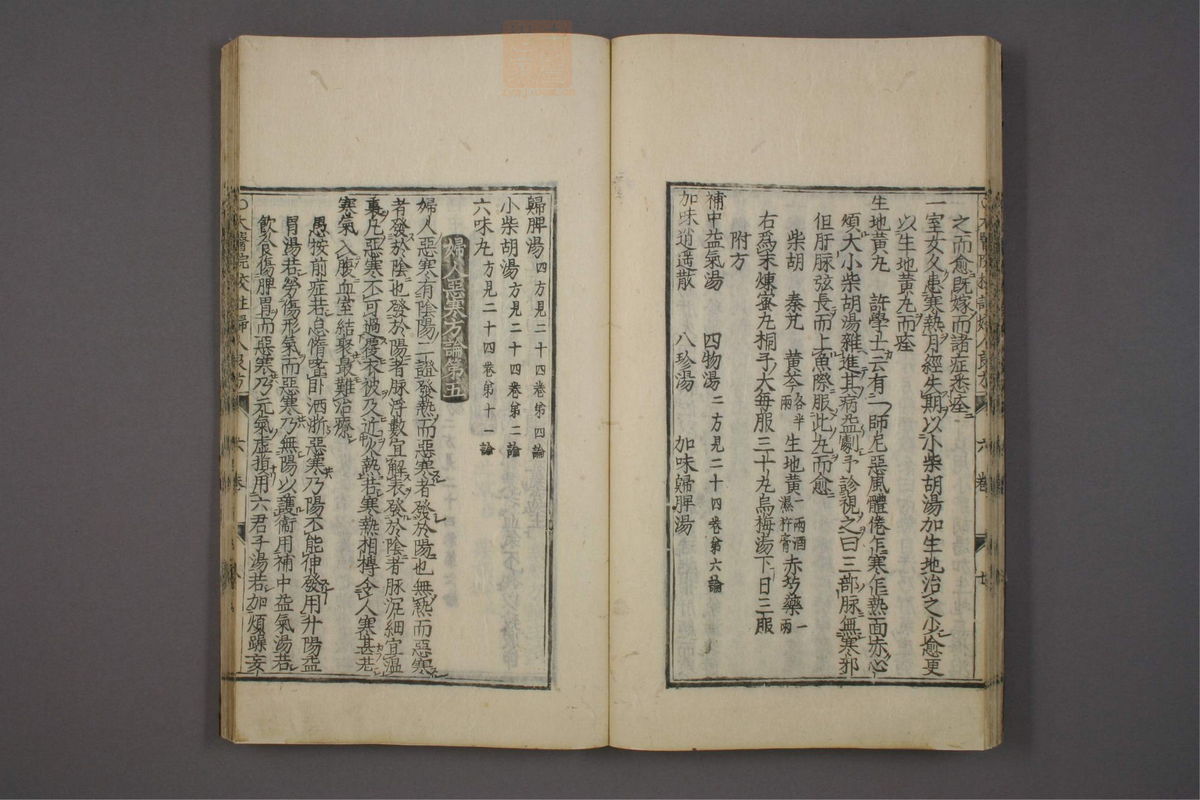 之而愈既嫁而諸症悉痊
一室女久患寒熱月經失期以小柴胡湯加生地治之少愈更
以生地黄丸而痊
生地黄丸　許學士云有一師尼惡風體倦乍寒乍熱面赤心
煩大小柴胡湯雜進其病益劇予診視之曰三部脉無寒邪
但肝脉弦長而上魚際服此丸而愈
柴胡　秦艽　黄芩各半兩　生地黄一兩酒濕杵膏　赤芍藥一兩
右爲末煉蜜丸桐子大每服三十丸烏梅湯下日三服
附方
補中益氣湯　四物湯二方見二十四卷第六論
加味逍遥散　八珍湯　加味歸脾湯
歸脾湯四方見二十四卷第四論
小柴胡湯方見二十四卷第二論
六味丸方見二十四卷第十一論
婦人惡寒方論第五
婦人惡寒有陰陽二證發熱而惡寒者發於陽也無熱而惡寒
者發於陰也發於陽者脉浮數宜解表發於陰者脉沉細宜温
裏凡惡寒不可過覆衣被及近火熱若寒熱相搏令人寒甚若
寒氣入腹血室結聚最難治療
愚按前症若怠惰嗜卧洒淅惡寒乃陽不能伸發用升陽益
胃湯若勞傷形氣而惡寒乃無陽以護衞用補中益氣湯若
飲食傷脾胃而惡寒乃元氣虛損用六君子湯若加煩躁妄
六卷
七
六卷